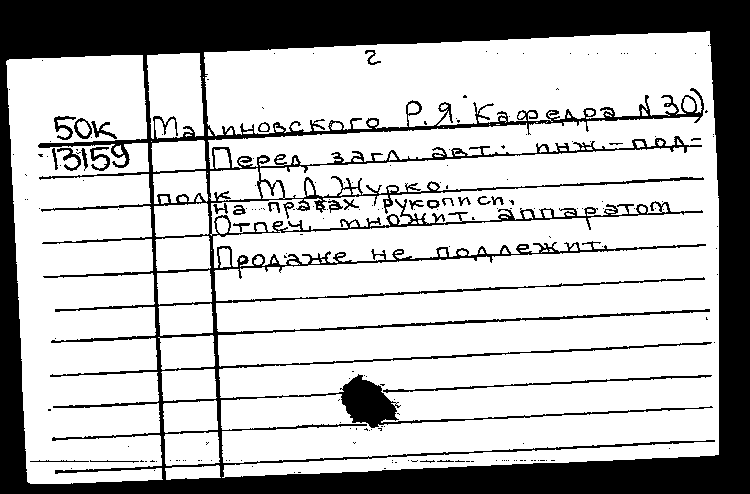 2
50к Малиновского Р.Я. Кафедра N 30).
13159 Перед загл. авт.: инж.-под=
полк М.Д.Журко.
на правах рукописи.
Отпеч. множит. аппаратом
Продаже не подлежит.